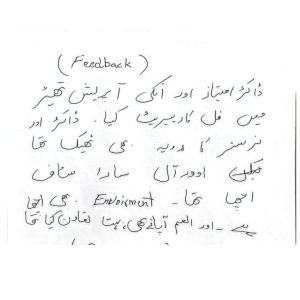 (Feedback)
ڈاکٹر امتیاز اور انکی آپریشن تھیٹر
میں فل کارپسریٹ کیا۔ ڈاکٹر اور
نرسز کا رویہ بھی ٹھیک تھا
اوورآل سارا سٹاف
اچھا تھا۔ Envoirment بھی اچھا
ہے۔ اور انعم آپا نے بھی بہت تعاون کیا تھا